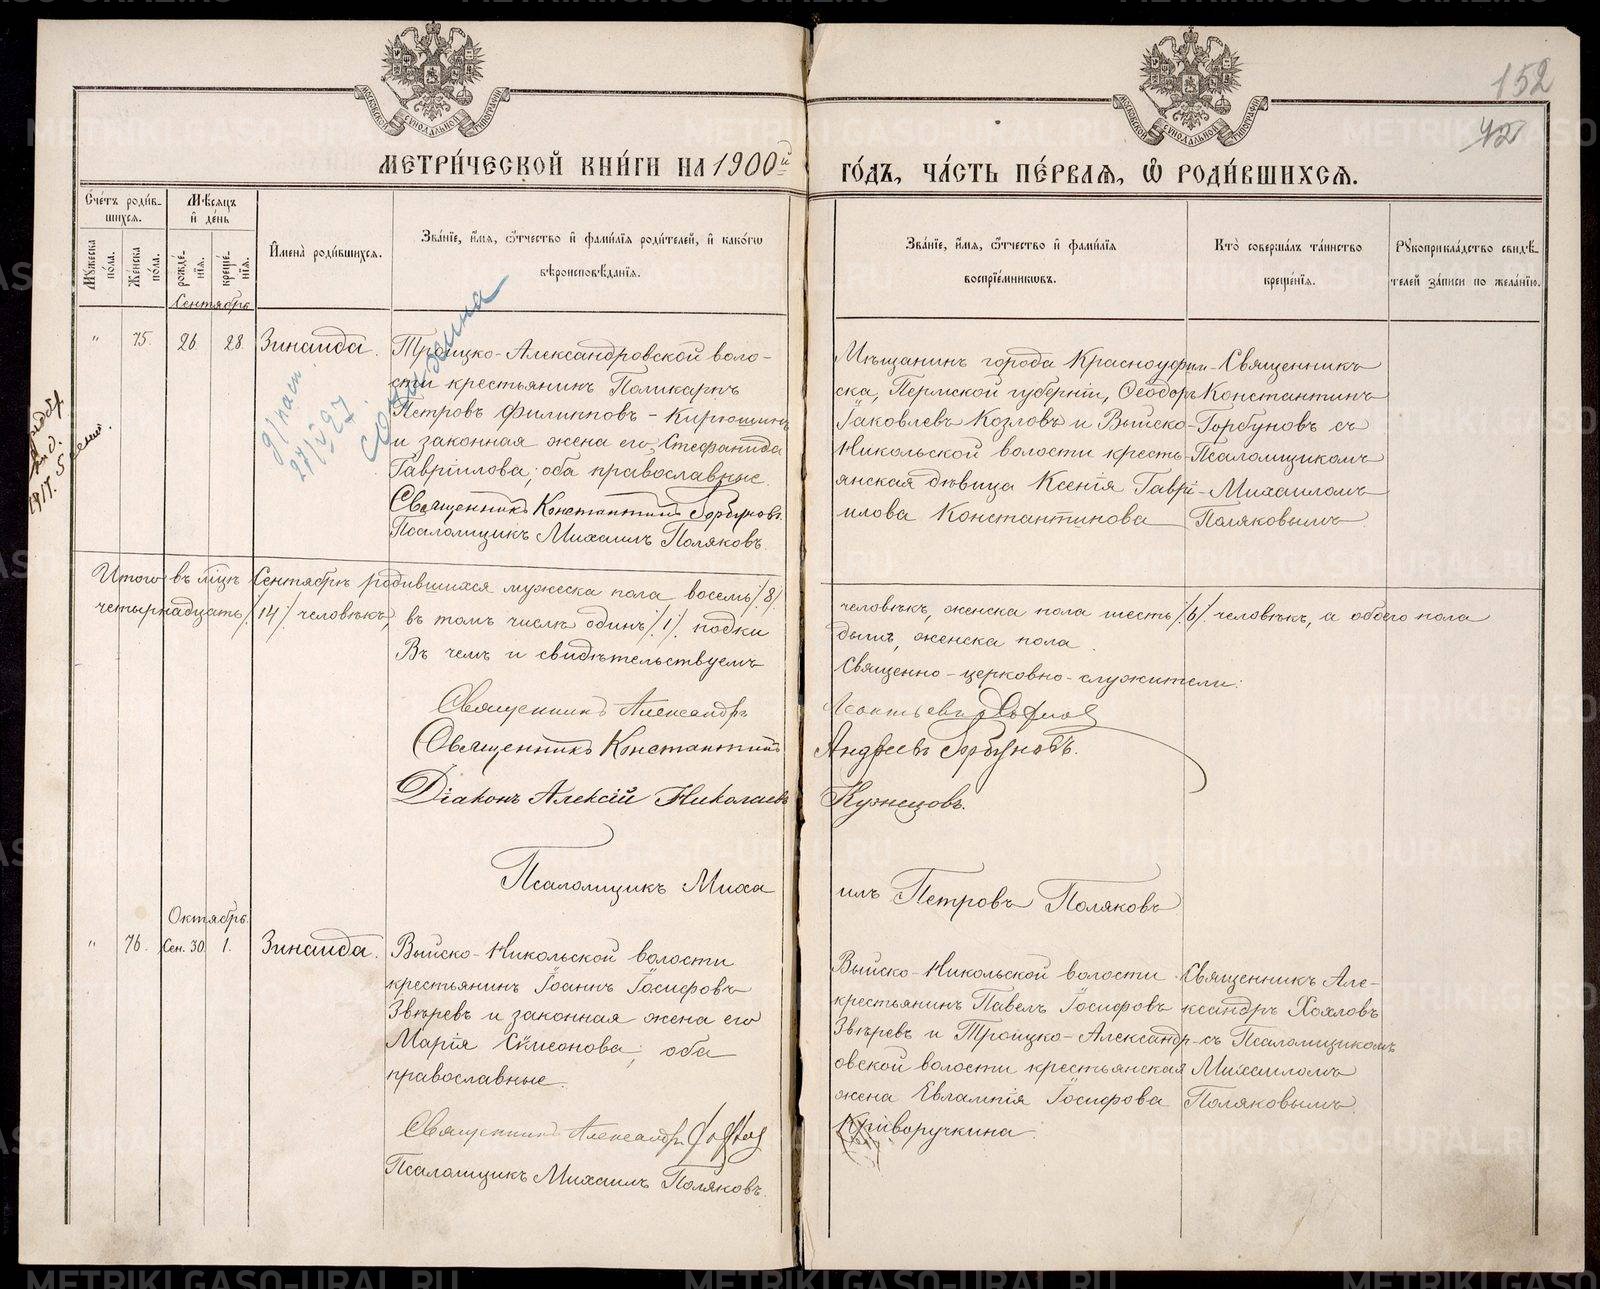 152
42
МЕТРИ́ЧЕСКОЙ КНИ́ГИ НА 1900й ГО́ДЪ, ЧА́СТЬ ПЕ́РВАЯ, Ѽ РОДИ́ВШИХСЯ.
Сче́тъ роди́в-
шихся.
Му́жеска по́ла.
Же́нска по́ла.
Мѣ́сяцъ и де́нь
рожде́-нія.
креще́-нія.
Имена̀ роди́вшихся.
Зва́ніе, и́мя, о́тчество и фами́лія роди́телей, и како́гѡ
вѣроисповѣ́данія.
Зва́ніе, и́мя, о́тчество и фами́лія
воспріе́мниковъ.
Кто̀ соверша́лъ та́инство
креще́нія.
Рукоприкла́дство свидѣ́-
телей за́писи по жела́нію.
Сентябрь
" 75. 26. 28. Зинаида.
Троицко-Александровской воло-
сти крестьянинъ Поликарпъ
Петровъ Филипповъ-Кирюшинъ
и законная жена его Стефанида
Гавріилова; оба православные.
Священникъ Константинъ Горбуновъ.
Псаломщикъ Михаилъ Поляковъ.
Мѣщанинъ города Красноуфим-
ска, Пермской губерніи, Ѳеодоръ
Іаковлевъ Козловъ и Выйско-
Никольской волости кресть-
янская дѣвица Ксенія Гаврі-
илова Константинова
Священникъ
Константинъ
Горбуновъ съ
Псаломщикомъ
Михаиломъ
Поляковымъ.
27/V 27
1917. 5
Итого въ мцѣ Сентябрѣ родившихся мужеска пола восемь /8/ человѣкъ, женска пола шесть /6/ человѣкъ, а обоего пола
четырнадцать /14/ человѣкъ, въ томъ числѣ одинъ /1/ подки дышъ, женска пола.
Въ чемъ и свидѣтельствуемъ Священно-церковно-служители:
Священникъ Александръ Леонтьевъ Хохловъ
Священникъ Константинъ Андреевъ Горбуновъ.
Діаконъ Алексій Николаевъ Кузнецовъ.
Псаломщикъ Миха илъ Петровъ Поляковъ
Октябрь.
" 76. Сен. 30 1. Зинаида.
Выйско-Никольской волости
крестьянинъ Іоаннъ Іосифовъ
Звѣревъ и законная жена его
Марія Сѵмеонова; оба
православные.
Священникъ Александръ Хохловъ
Псаломщикъ Михаилъ Поляковъ.
Выйско-Никольской волости
крестьянинъ Павелъ Іосифовъ
Звѣревъ и Троицко-Александр-
овской волости крестьянская
жена Евлампія Іосифова
Криворучкина.
Священникъ Але-
ксандръ Хохловъ
съ Псаломщикомъ
Михаиломъ
Поляковымъ.
METRIKI.GASO-URAL.RU